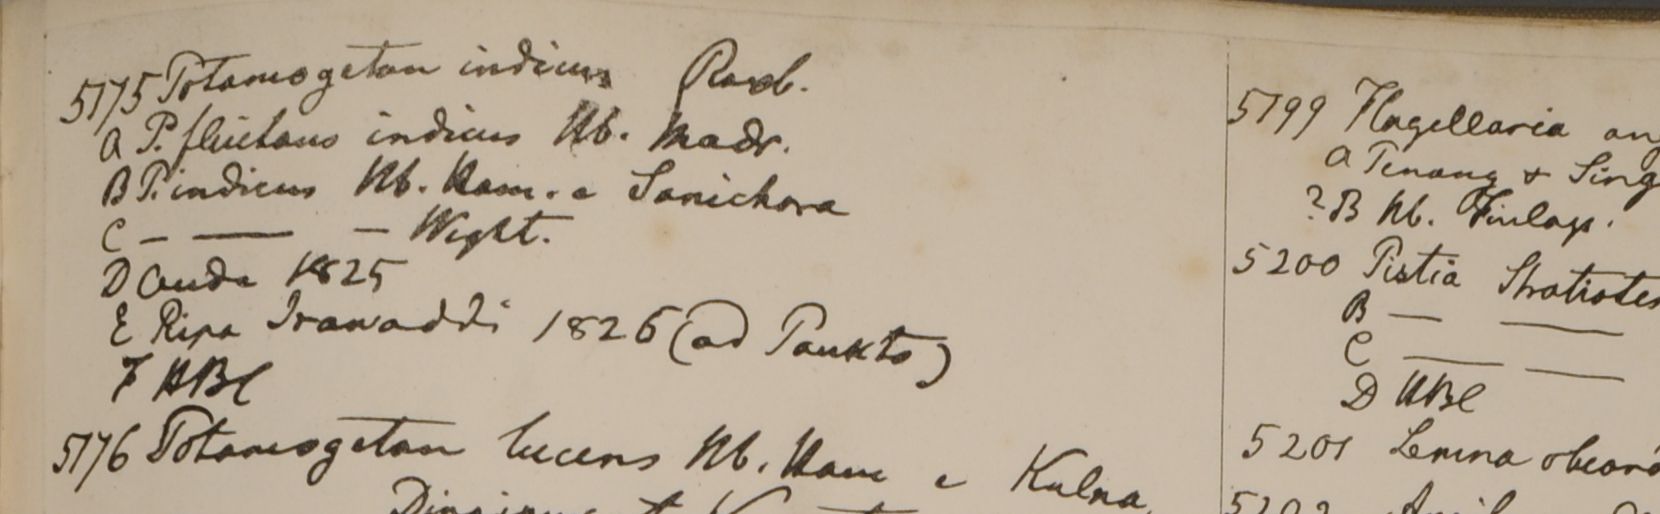 5175 Potamogeton indicus Roxb.
A P. fluitans indicus Hb. Madr.
B P. indicus Hb. Ham. e Sanichora
C — —— — Wight.
D Oude 1825
E Ripa Irawaddi 1826 (ad Paukto)
F HBC
5176 Potamogeton lucens Hb. Ham e Kulna
5199 Flagellaria
A Penang & Sing
? B Hb. Finlays.
5200 Pistia Stratiotes
B — ——
C —— ——
D HBC
5201 Lemna obcord
5202